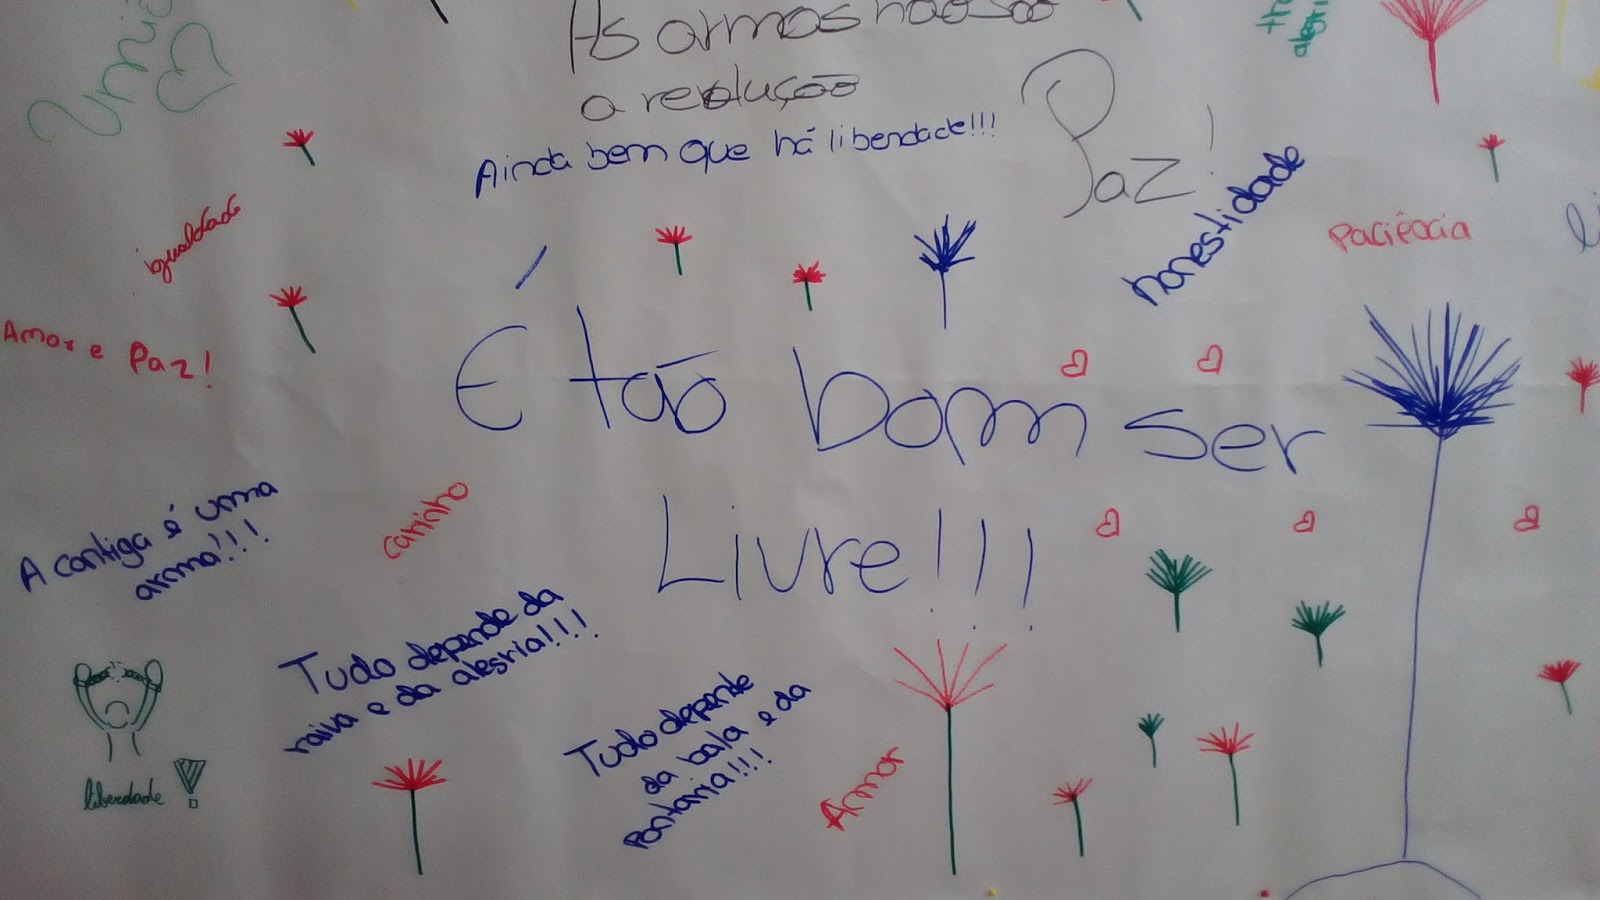 As armas não são
a revolução
Ainda bem que há liberdade!!!
Paz!
honestidade
paciência
igualdade
Amor e Paz!
É tão bom ser
Livre!!!
A cantiga é uma
arma!!!
carinho
Tudo depende da
raiva e da alegria!!!
Tudo depende
da bala e da
pontaria!!!
Amor
liberdade!